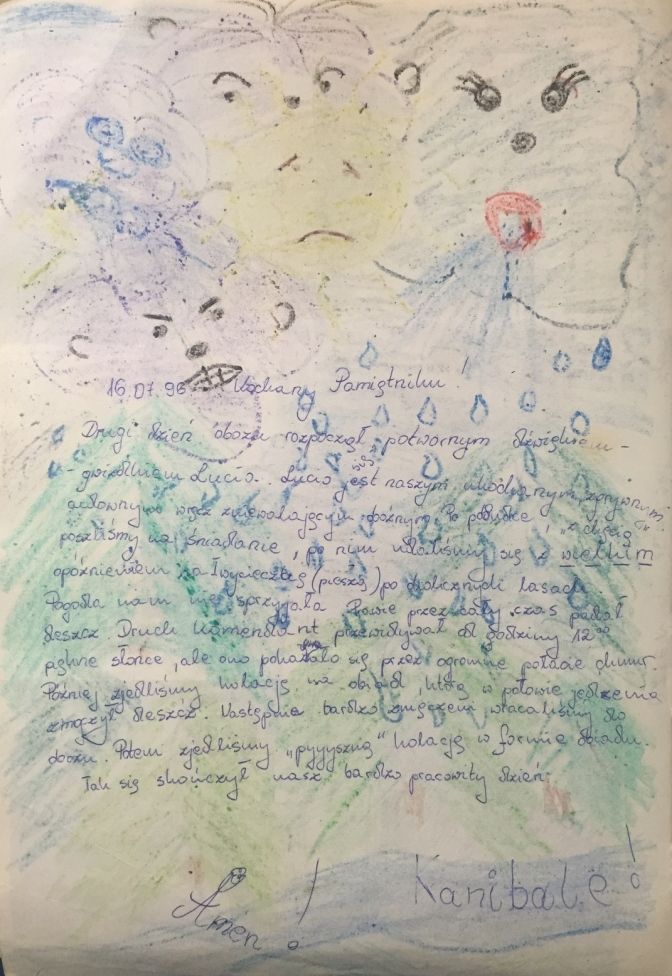 16.07.96 Kochany Pamiętniku!
Drugi dzień obozu rozpoczął potwornym dźwiękiem -
- gwizdkiem Lucio. Lucio jest naszym ukochanym,
cudownym wręcz zniewalającym Po pobudce "z chęcią"
poszliśmy na śniadanie, po nim udaliśmy się z wielkim
opóźnieniem na wycieczkę (pieszą) po okolicznych lasach.
Pogoda nam nie sprzyjała. Prawie przez cały czas padał
deszcz. Druch Komendant przewidywał od godziny 12°°
piękne słońce, ale ono pokazało się przez ogromne połacie chmur.
Później zjedliśmy kolację na obiad którą w połowie jedzenia
zmoczył deszcz. Następnie bardzo zmęczeni wracaliśmy do
obozu. Potem zjedliśmy "pyyyszną" kolację w formie obiadu.
Tak się skończył nasz bardzo pracowity dzień.
Amen!
Kanibale!